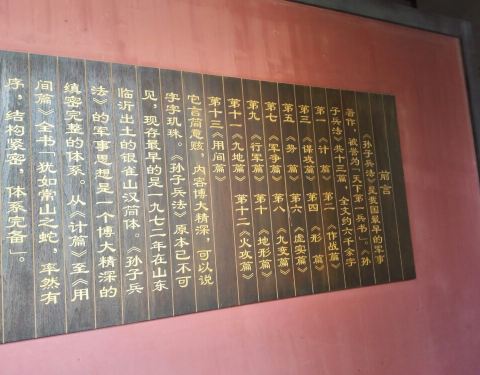 前言
《孙子兵法》是我国最早的军事
著作，被誉为「天下第一兵书」。《孙
子兵法》共十三篇，全文约六千余字
第一《计篇》第二《作战篇》
第三《谋攻篇》第四《形篇》
第五《势篇》第六《虚实篇》
第七《军争篇》第八《九变篇》
第九《行军篇》第十《地形篇》
第十一《九地篇》第十二《火攻篇》
第十三《用间篇》
它言简意赅，内容博大精深，可以说
字字玑珠。《孙子兵法》原本已不可
见，现存最早的是一九七二年在山东
临沂出土的银雀山汉简体。《孙子兵
法》的军事思想是一个博大精深的
缜密完整的体系。从《计篇》至《用
间篇》全书「犹如常山之蛇，率然有
序，结构紧密，体系完备」。